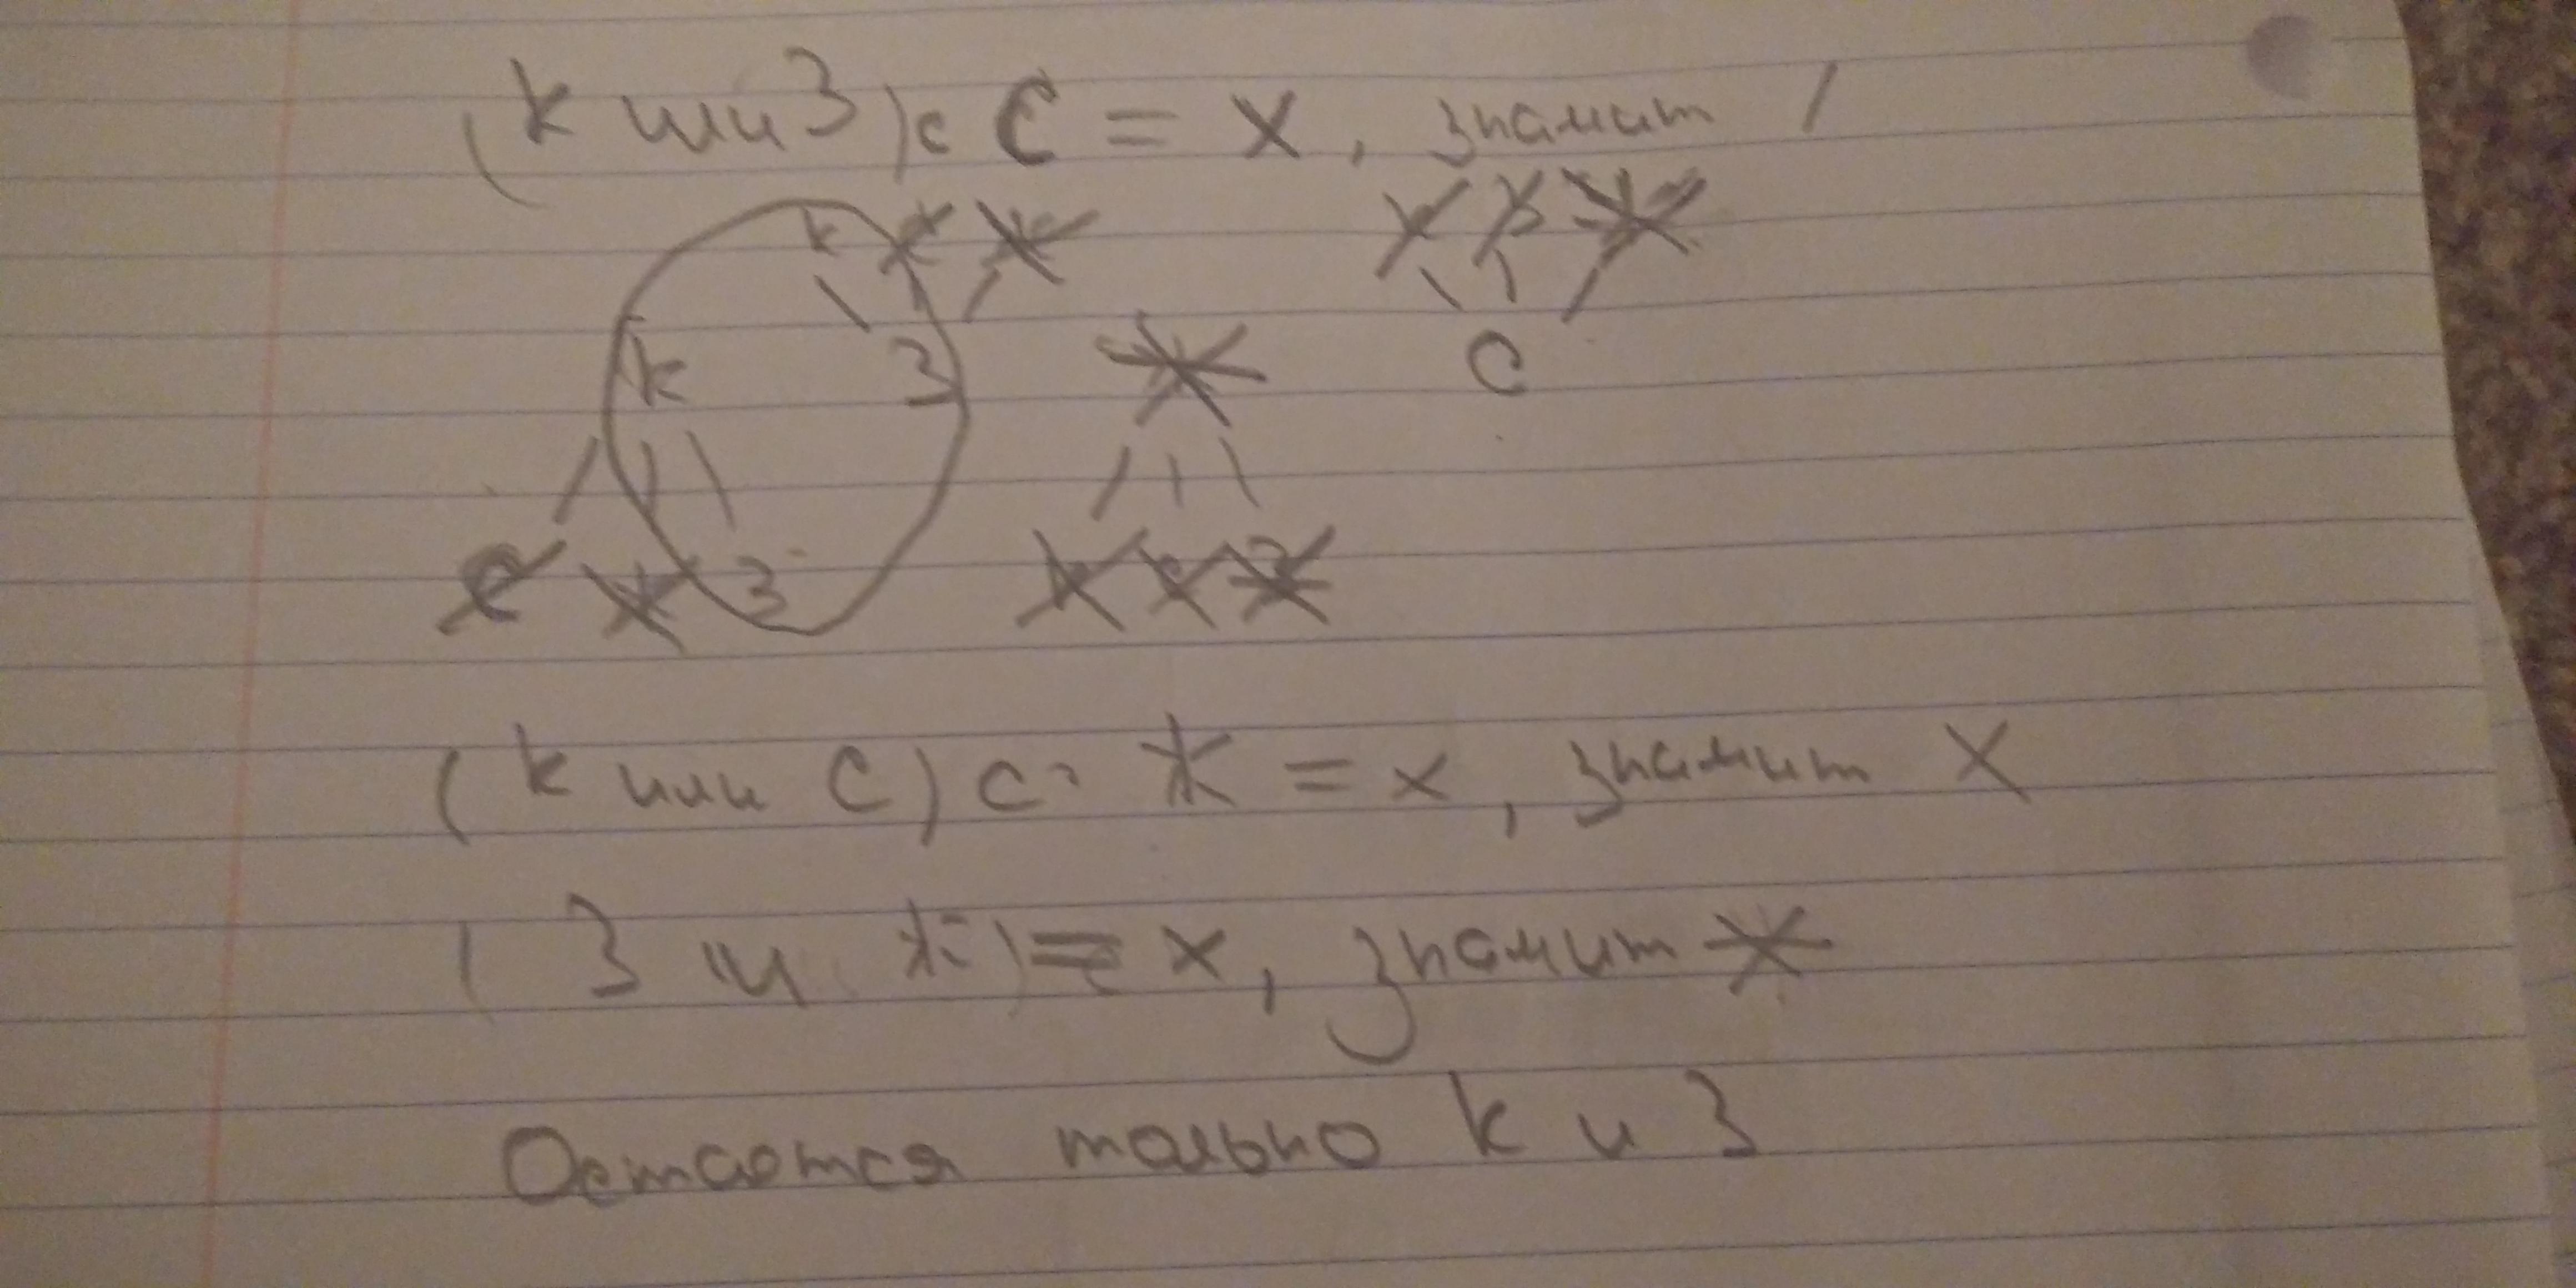 (К или З) с С = х, значит /
К З
К С
З
(К или С) с Ж = х, значит Х
(З и Ж) = х, значит Ж
Остаётся только К и З